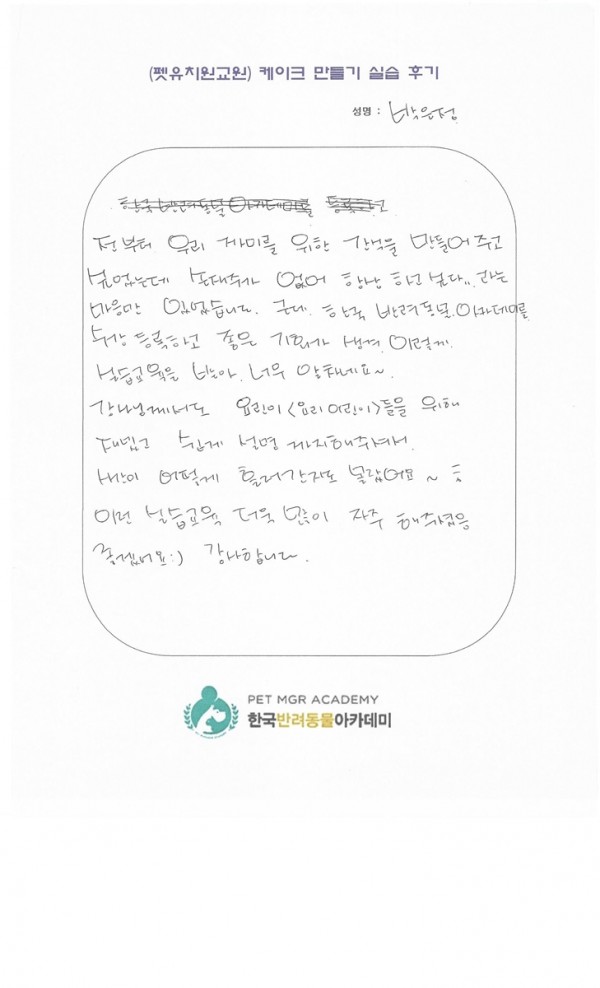 (펫유치원교원) 케이크 만들기 실습 후기
성명 : 박은정
한국 반려동물 아카데미를 등록하고
전부터 우리 개미를 위한 간식을 만들어 주고
싶었는데 손재주가 없어 항상 하고 싶다.. 라는
마음만 있었습니다. 근데, 한국 반려동물 아카데미를
수강 등록하고 좋은 기회가 생겨 이렇게
실습교육을 받아 너무 알차네요~.
강사님께서도 요린이<요리 어린이>들을 위해
재밌고 쉽게 설명 까지해주셔서,
시간이 어떻게 흘러간지도 몰랐어요~
이런 실습교육 더욱 많이 자주 해주셨음
좋겠어요:) 감사합니다.
PET MGR ACADEMY
한국반려동물아카데미